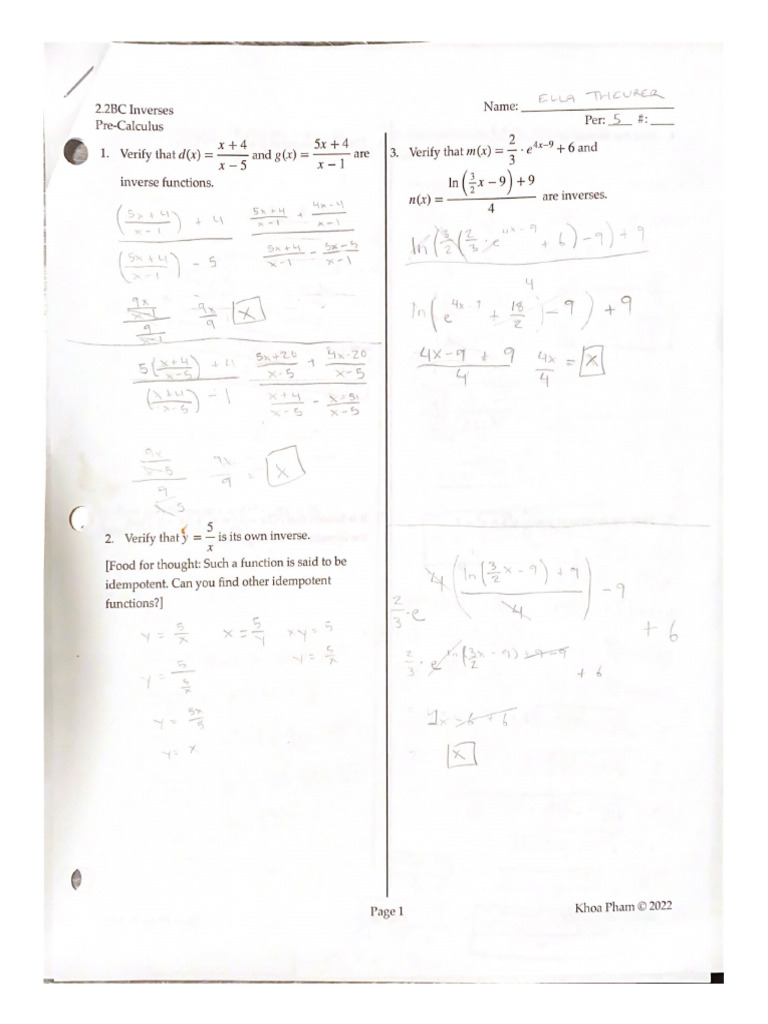 2.2BC Inverses
Pre-Calculus
Name: ELLA THEURER
Per: 5 #:
1. Verify that d(x) = (x + 4)/(x − 5) and g(x) = (5x + 4)/(x − 1) are
inverse functions.
((5x+4)/(x-1)) + 4 (5x+4)/(x-1) + (4x-4)/(x-1)
((5x+4)/(x-1)) - 5 (5x+4)/(x-1) - (5x-5)/(x-1)
9x/(x-1) 9x/9 x
9/(x-1)
5((x+4)/(x-5)) + 4 (5x+20)/(x-5) + (4x-20)/(x-5)
((x+4)/(x-5)) - 1 (x+4)/(x-5) - (x-5)/(x-5)
9x/(x-5) 9x/9 = x
9/(x-5)
2. Verify that y = 5/x is its own inverse.
[Food for thought: Such a function is said to be
idempotent. Can you find other idempotent
functions?]
y = 5/x x = 5/y xy = 5
y = 5/x
y = 5/(5/x)
y = 5x/5
y = x
3. Verify that m(x) = 2/3 · e^(4x−9) + 6 and
n(x) = (ln(3/2 x − 9) + 9)/4 are inverses.
ln(3/2(2/3 · e^(4x-9) + 6) - 9) + 9
4
ln(e^(4x-9) + 18/2 - 9) + 9
(4x-9+9)/4 4x/4 = x
2/3 · e^(4((ln(3/2 x - 9) + 9)/4) - 9) + 6
2/3 · e^(ln(3/2 x - 9) + 9 - 9) + 6
1x - 6 + 6
= x
Page 1
Khoa Pham © 2022